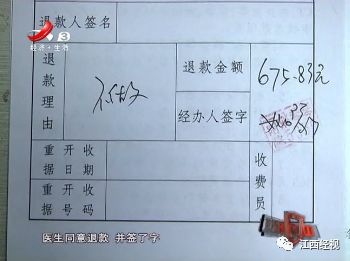 3
经济·生活
退款人签名
退款理由
不做
退款金额
675.83元
经办人签字
重开收据日期
重开收据号码
收费员
医生同意退款 并签了字
江西经视